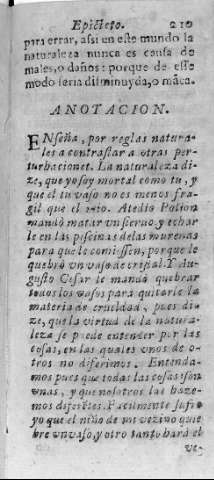 Epicteto. 210
para errar, assi en este mundo la
naturaleza nunca es causa de
males, o daños: porque de esse
modo seria disminuyda, o mãca.
ANOTACION.
ENseña, por reglas natura-
les a contrastar a otras per-
turbaciones. La naturaleza di-
ze, que yo soy mortal como tu, y
que el tu vaso no es menos fra-
gil que el mio. Atedio Polion
mandò matar vn sieruo y echar
le en las piscinas de las murenas
para que le comiessen, porque le
quebrò vn vaso de cristal. Y Au-
gusto Cesar le mandò quebrar
todos los vasos para quitarle la
materia de crueldad, pues di-
ze, que la virtud de la natura-
leza se puede entender por las
cosas, en las quales vnos de o-
tros no diferimos. Entenda-
mos pues que todas las cosas son
vnas, y que nosotros las haze-
mos diferẽtes. Facilmente sufro
yo que el niño de mi vezino quie
bre vn vaso, y otro tanto harà el